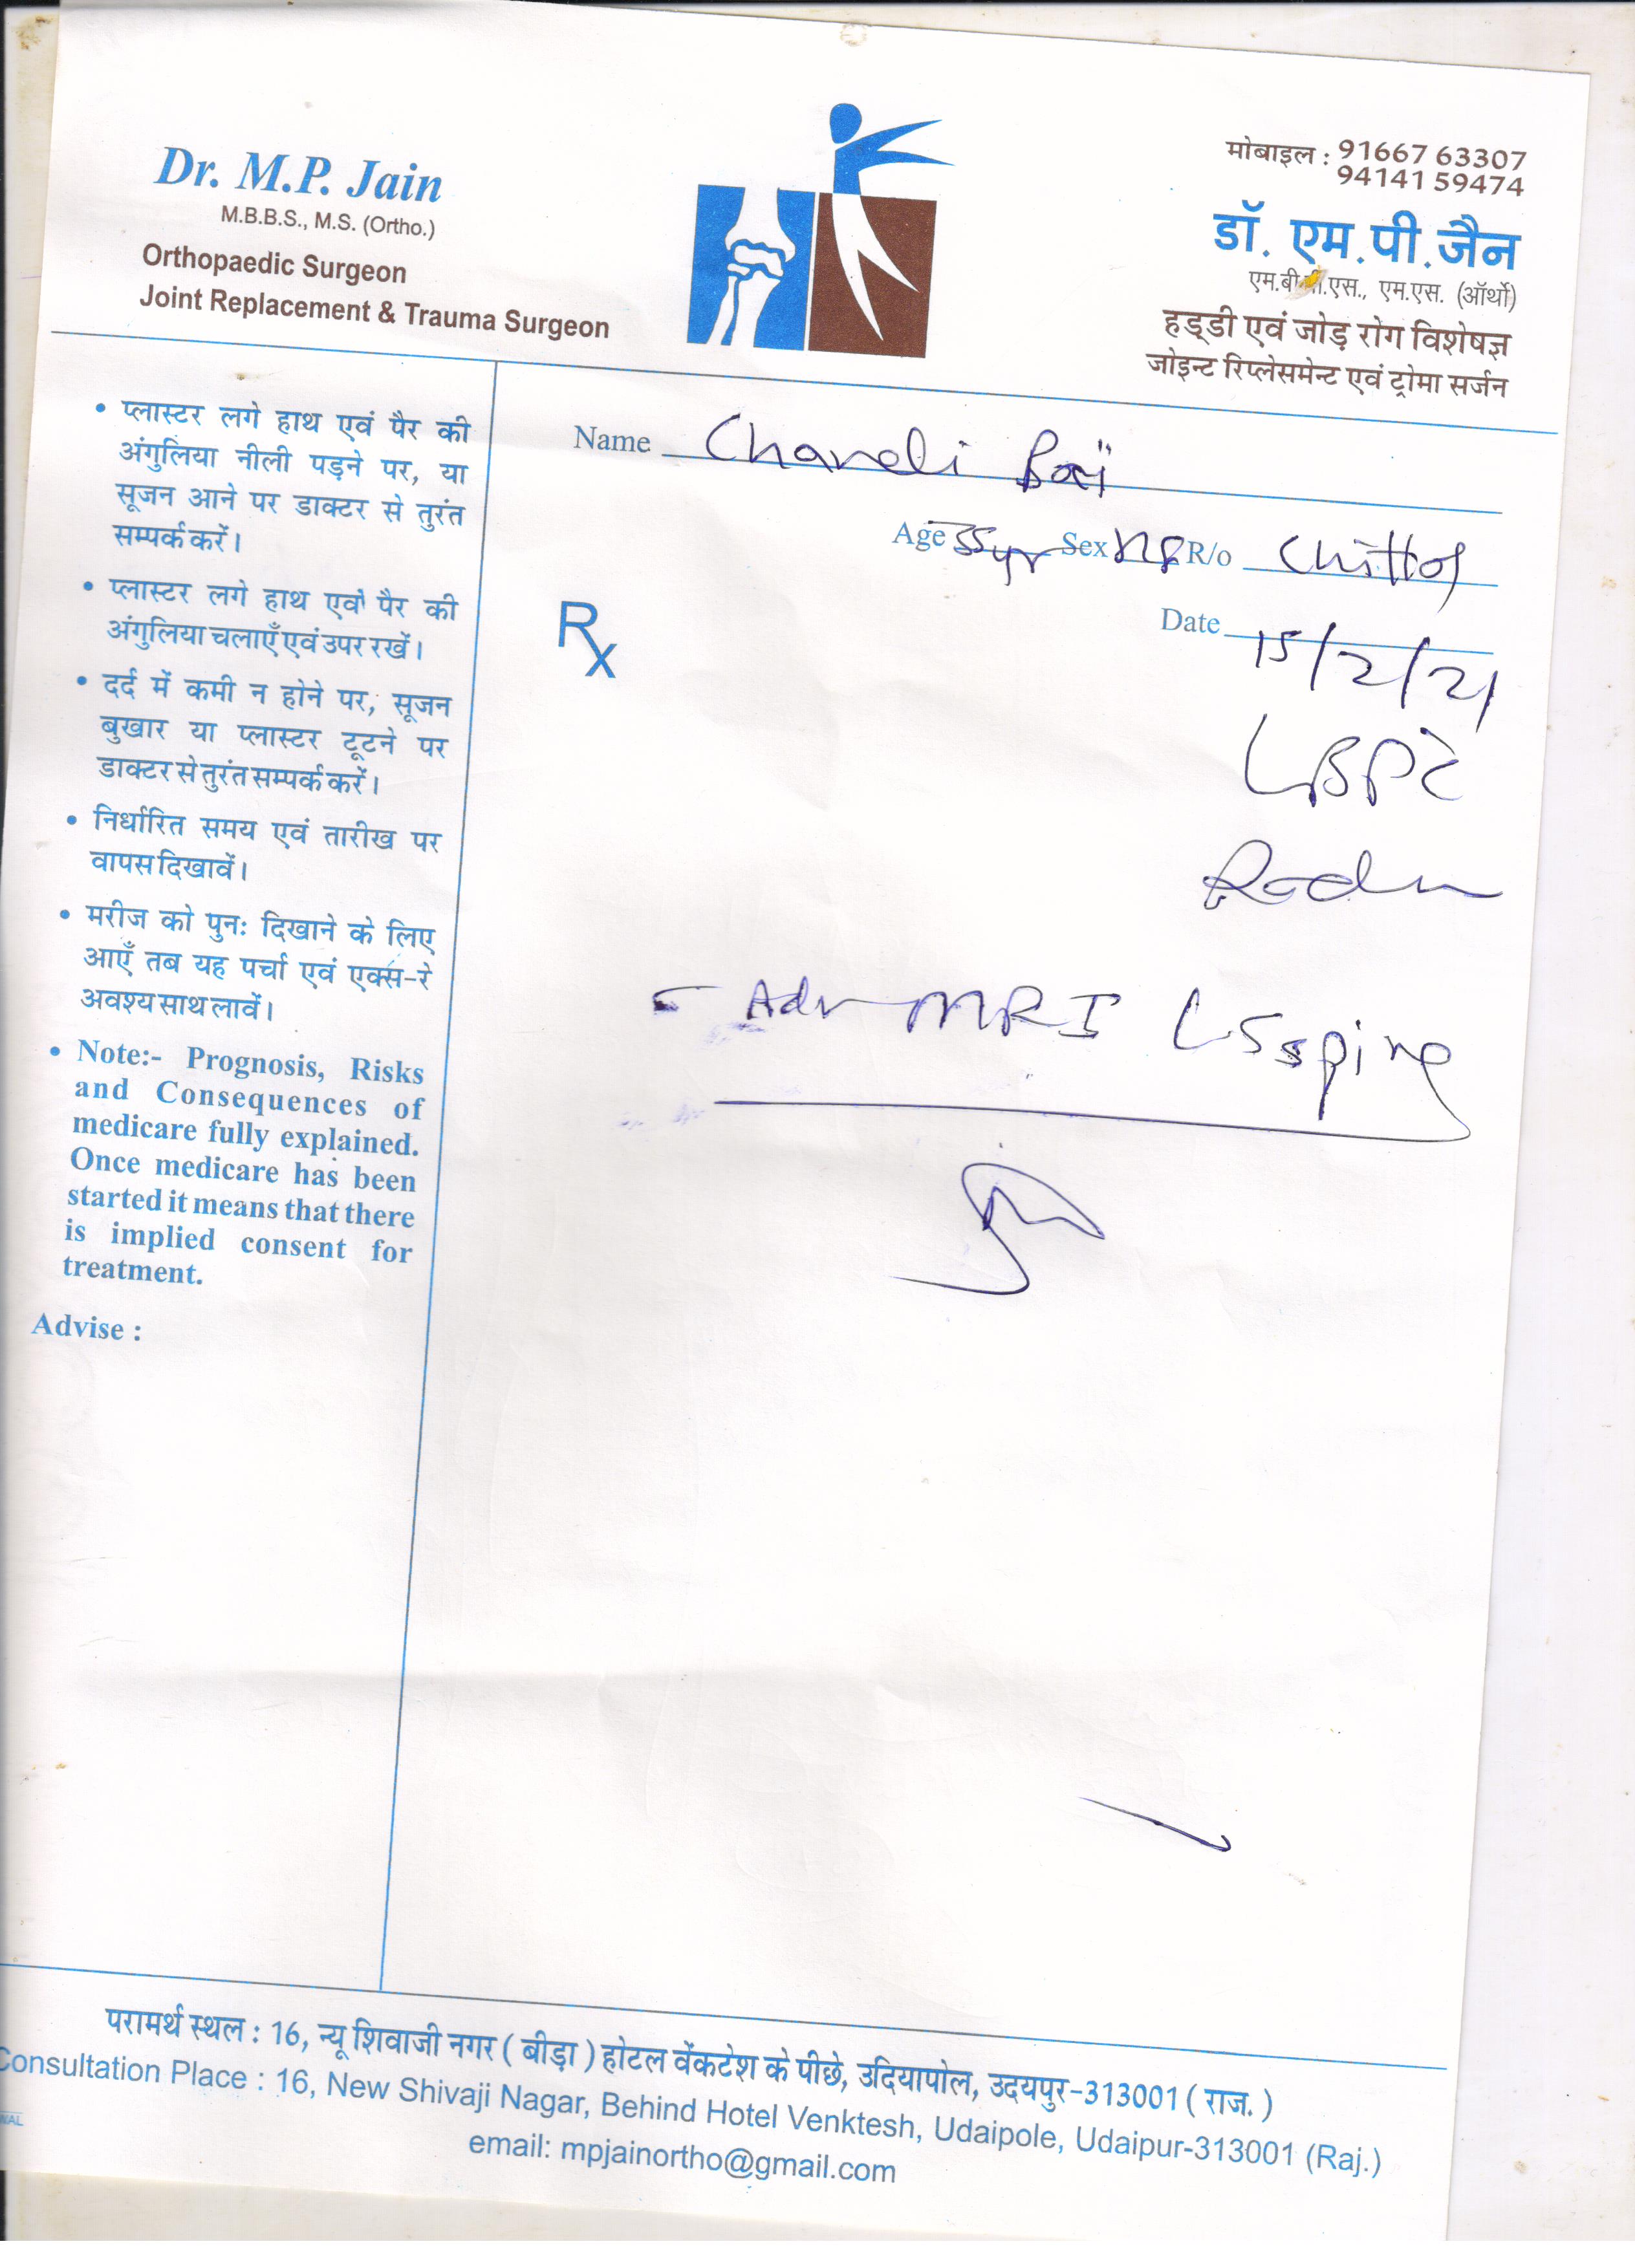 Dr. M.P. Jain
M.B.B.S., M.S. (Ortho.)
Orthopaedic Surgeon
Joint Replacement & Trauma Surgeon
मोबाइल : 91667 63307
94141 59474
डॉ. एम.पी.जैन
एम.बी.बी.एस., एम.एस. (ऑर्थो)
हड्डी एवं जोड़ रोग विशेषज्ञ
जोइन्ट रिप्लेसमेन्ट एवं ट्रोमा सर्जन
• प्लास्टर लगे हाथ एवं पैर की
अंगुलिया नीली पड़ने पर, या
सूजन आने पर डाक्टर से तुरंत
सम्पर्क करें।
• प्लास्टर लगे हाथ एवं पैर की
अंगुलिया चलाएँ एवं उपर रखें।
• दर्द में कमी न होने पर, सूजन
बुखार या प्लास्टर टूटने पर
डाक्टर से तुरंत सम्पर्क करें।
• निर्धारित समय एवं तारीख पर
वापस दिखावें।
• मरीज को पुनः दिखाने के लिए
आएँ तब यह पर्चा एवं एक्स-रे
अवश्य साथ लावें।
• Note:- Prognosis, Risks
and Consequences of
medicare fully explained.
Once medicare has been
started it means that there
is implied consent for
treatment.
Advise :
Name Chandi Bai
Age 35yr Sex R/o Chittor
Date 15/2/21
Rx
LBP c̄
- Adv MRI LS spine
परामर्थ स्थल : 16, न्यू शिवाजी नगर ( बीड़ा ) होटल वेंकटेश के पीछे, उदियापोल, उदयपुर-313001 ( राज. )
Consultation Place : 16, New Shivaji Nagar, Behind Hotel Venktesh, Udaipole, Udaipur-313001 (Raj.)
email: mpjainortho@gmail.com